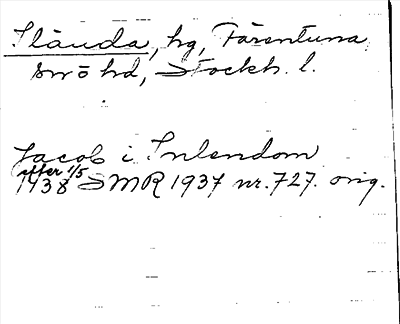 Slånda, hg, Färentuna
smöhd, Stockh. l.
Jacob i Inlendom
efter 1/5
1438 SMR 1937 nr. 727. orig.